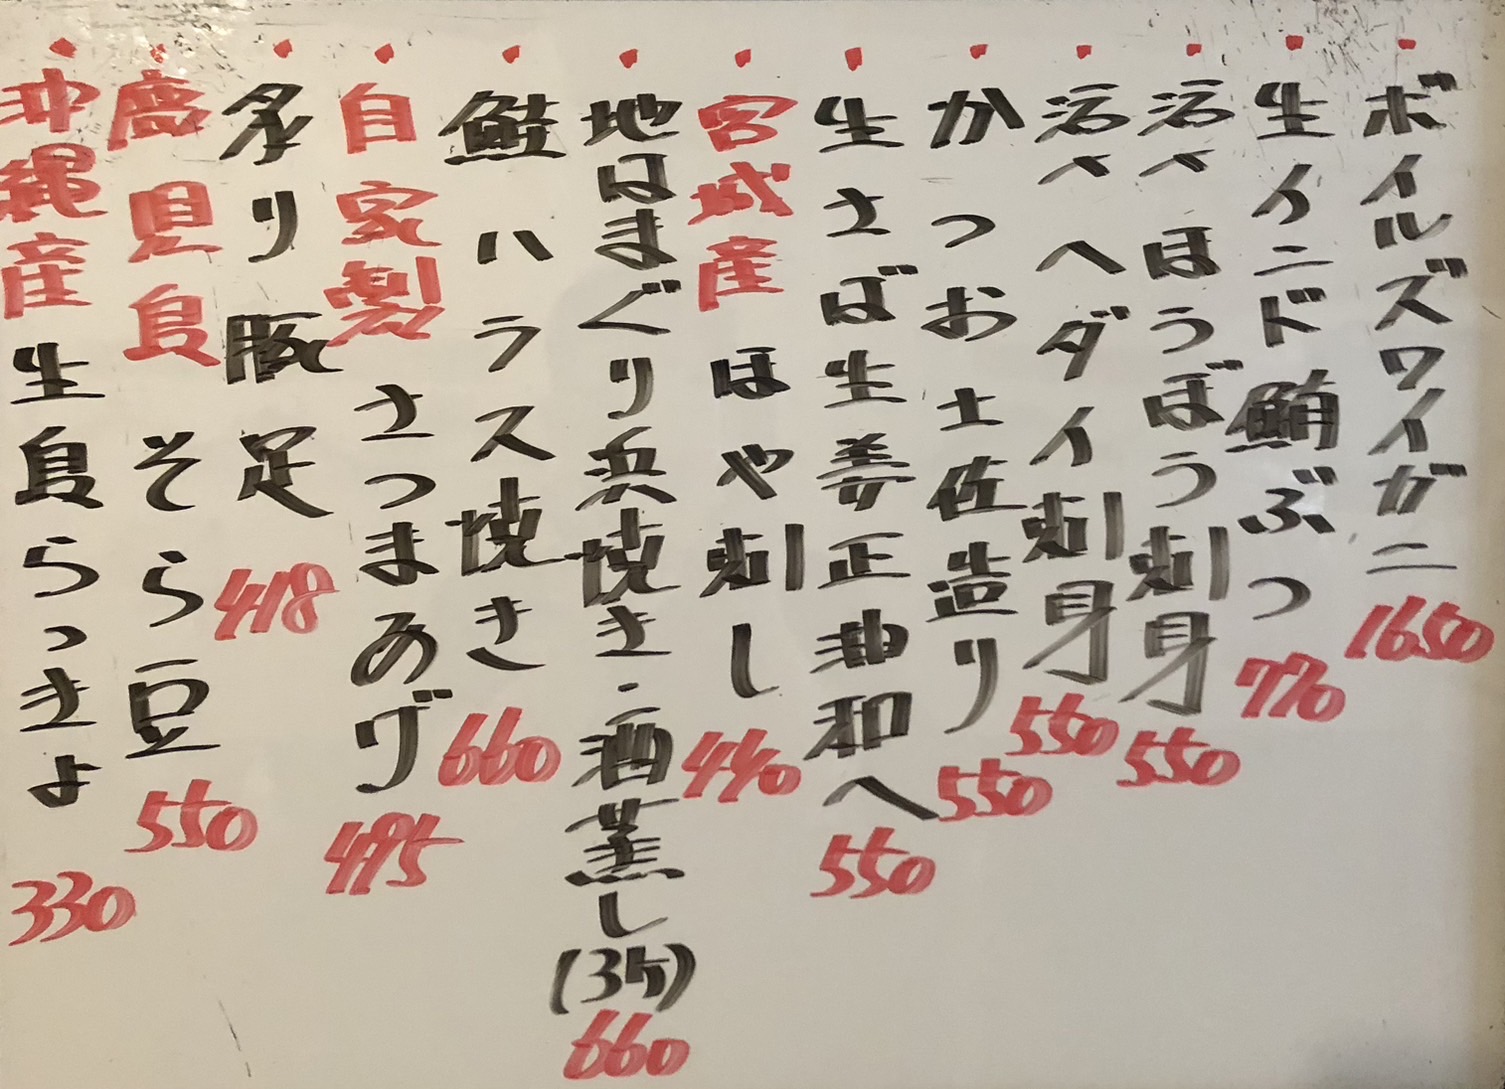 ・ボイルズワイガニ 1650
・生インド鮪ぶつ 770
・活〆ほうぼう刺身 550
・活〆ヘダイ刺身 550
・かつお土佐造り 550
・生さば生姜正油和へ 550
・宮城産 ほや刺し 440
・地はまぐり浜焼き・酒蒸し(3ケ) 660
・鮭ハラス焼き 660
・自家製 さつまあげ 495
・炙り豚足 418
・鹿児島 そら豆 550
・沖縄産 生島らっきょ 330